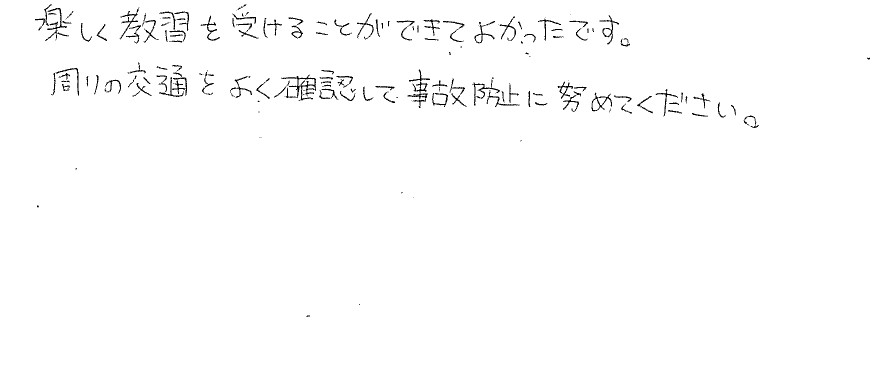 楽しく教習を受けることができてよかったです。
周りの交通をよく確認して事故防止に努めてください。